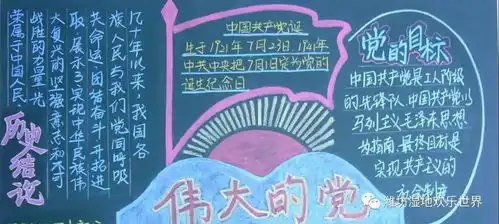 几十年以来,我国各
族人民与我们党同呼吸
共命运,团结奋斗,开拓进
取,展示了实现中华民族伟
大复兴的坚强意志和不可
战胜的力量,光
荣属于中国人民
历史结论
中国共产党诞
生于1921年7月23日,1941年
中共中央把7月1日定为党的
诞生纪念日
伟大的党
党的目标
中国共产党是工人阶级
的先锋队,中国共产党以
马列主义毛泽东思想
为指南,最终目标是
实现共产主义的
社会制度
潍坊湿地欢乐世界